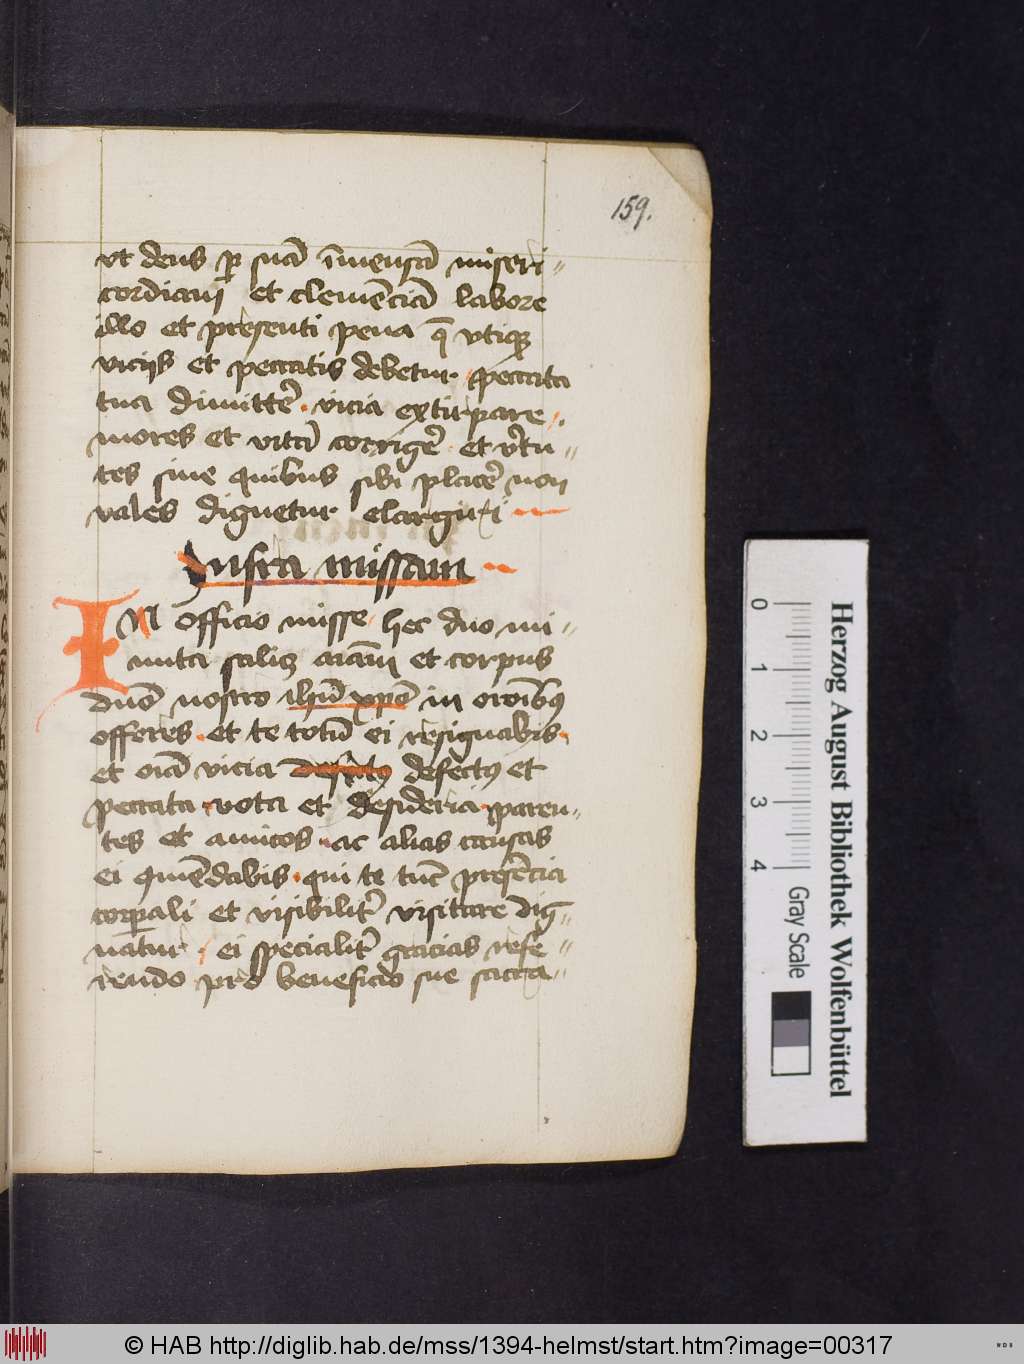 159.
vt deus ꝑ suā īmensā miseri〃
cordiam et clemēciā labore
illo et presenti pena q̄ vtiqꝫ
viciis et peccatis debetur peccata
tua dimittē͛ · vicia extirpare ·
mores et vitā corrigē͛ · et v͛tu〃
tes sine quibus sibi placē͛ non
vales dignetur elargiri
Infra missam
IN officio misse hec duo mi〃
nuta salicꝫ aīam et corpus
dn̄o nostro ih̄u xp̄o in oroībꝰ
offeres · et te totū ei resignabis ·
et oīa vicia defectꝰ defectꝰ et
peccata · vota et desideria · paren〃
tes et amicos · ac alias causas
ei 9mēdabis · qui te tūc presēcia
corꝑali et visibilit͛ visitare dig〃
natur · ei specialit͛ gracias refe〃
rendo pro beneficio sue sacra〃
Herzog August Bibliothek Wolfenbüttel
0 1 2 3 4
Gray Scale
© HAB http://diglib.hab.de/mss/1394-helmst/start.htm?image=00317